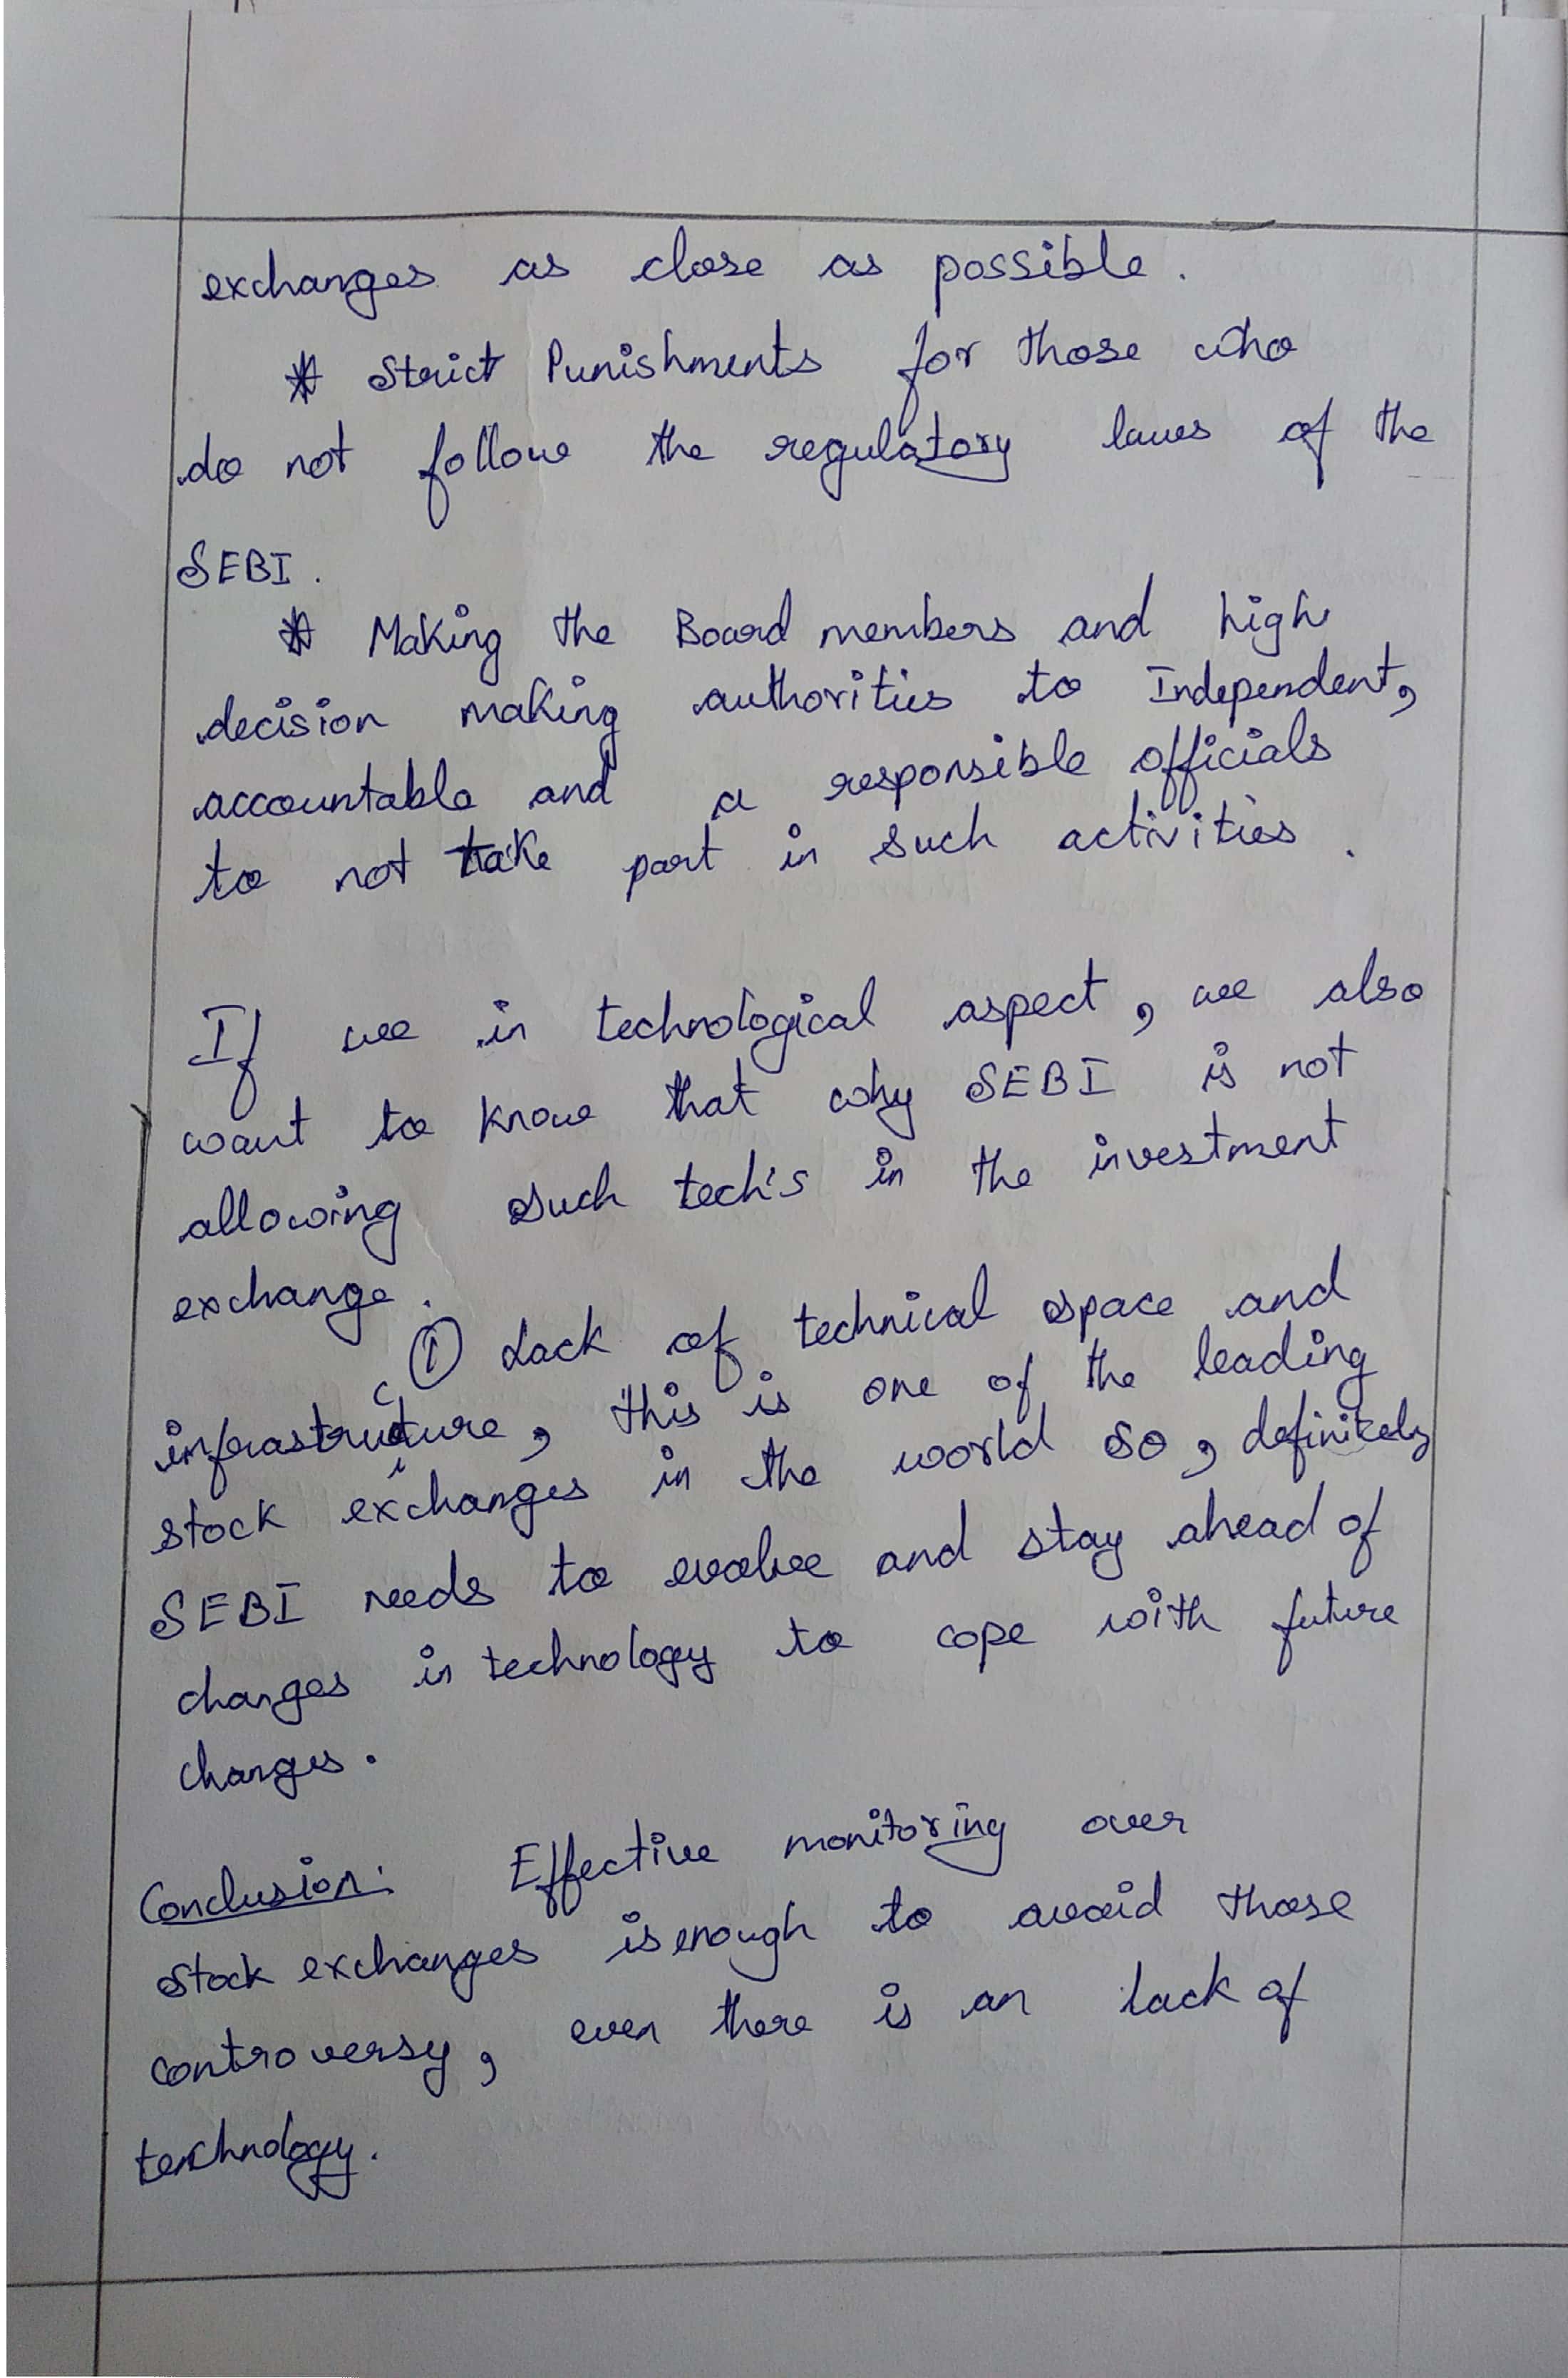 exchanges as close as possible.
* Strict Punishments for those who
do not follow the regulatory laws of the
SEBI.
* Making the Board members and high
decision making authorities to Independent,
accountable and a responsible officials
to not take part in such activities.
If we in technological aspect, we also
want to know that why SEBI is not
allowing such tech's in the investment
exchange.
① Lack of technical space and
infrastructure, this is one of the leading
stock exchanges in the world so, definitely
SEBI needs to evolve and stay ahead of
changes in technology to cope with future
changes.
Conclusion: Effective monitoring over
stock exchanges is enough to avoid those
controversy, even there is an lack of
technology.